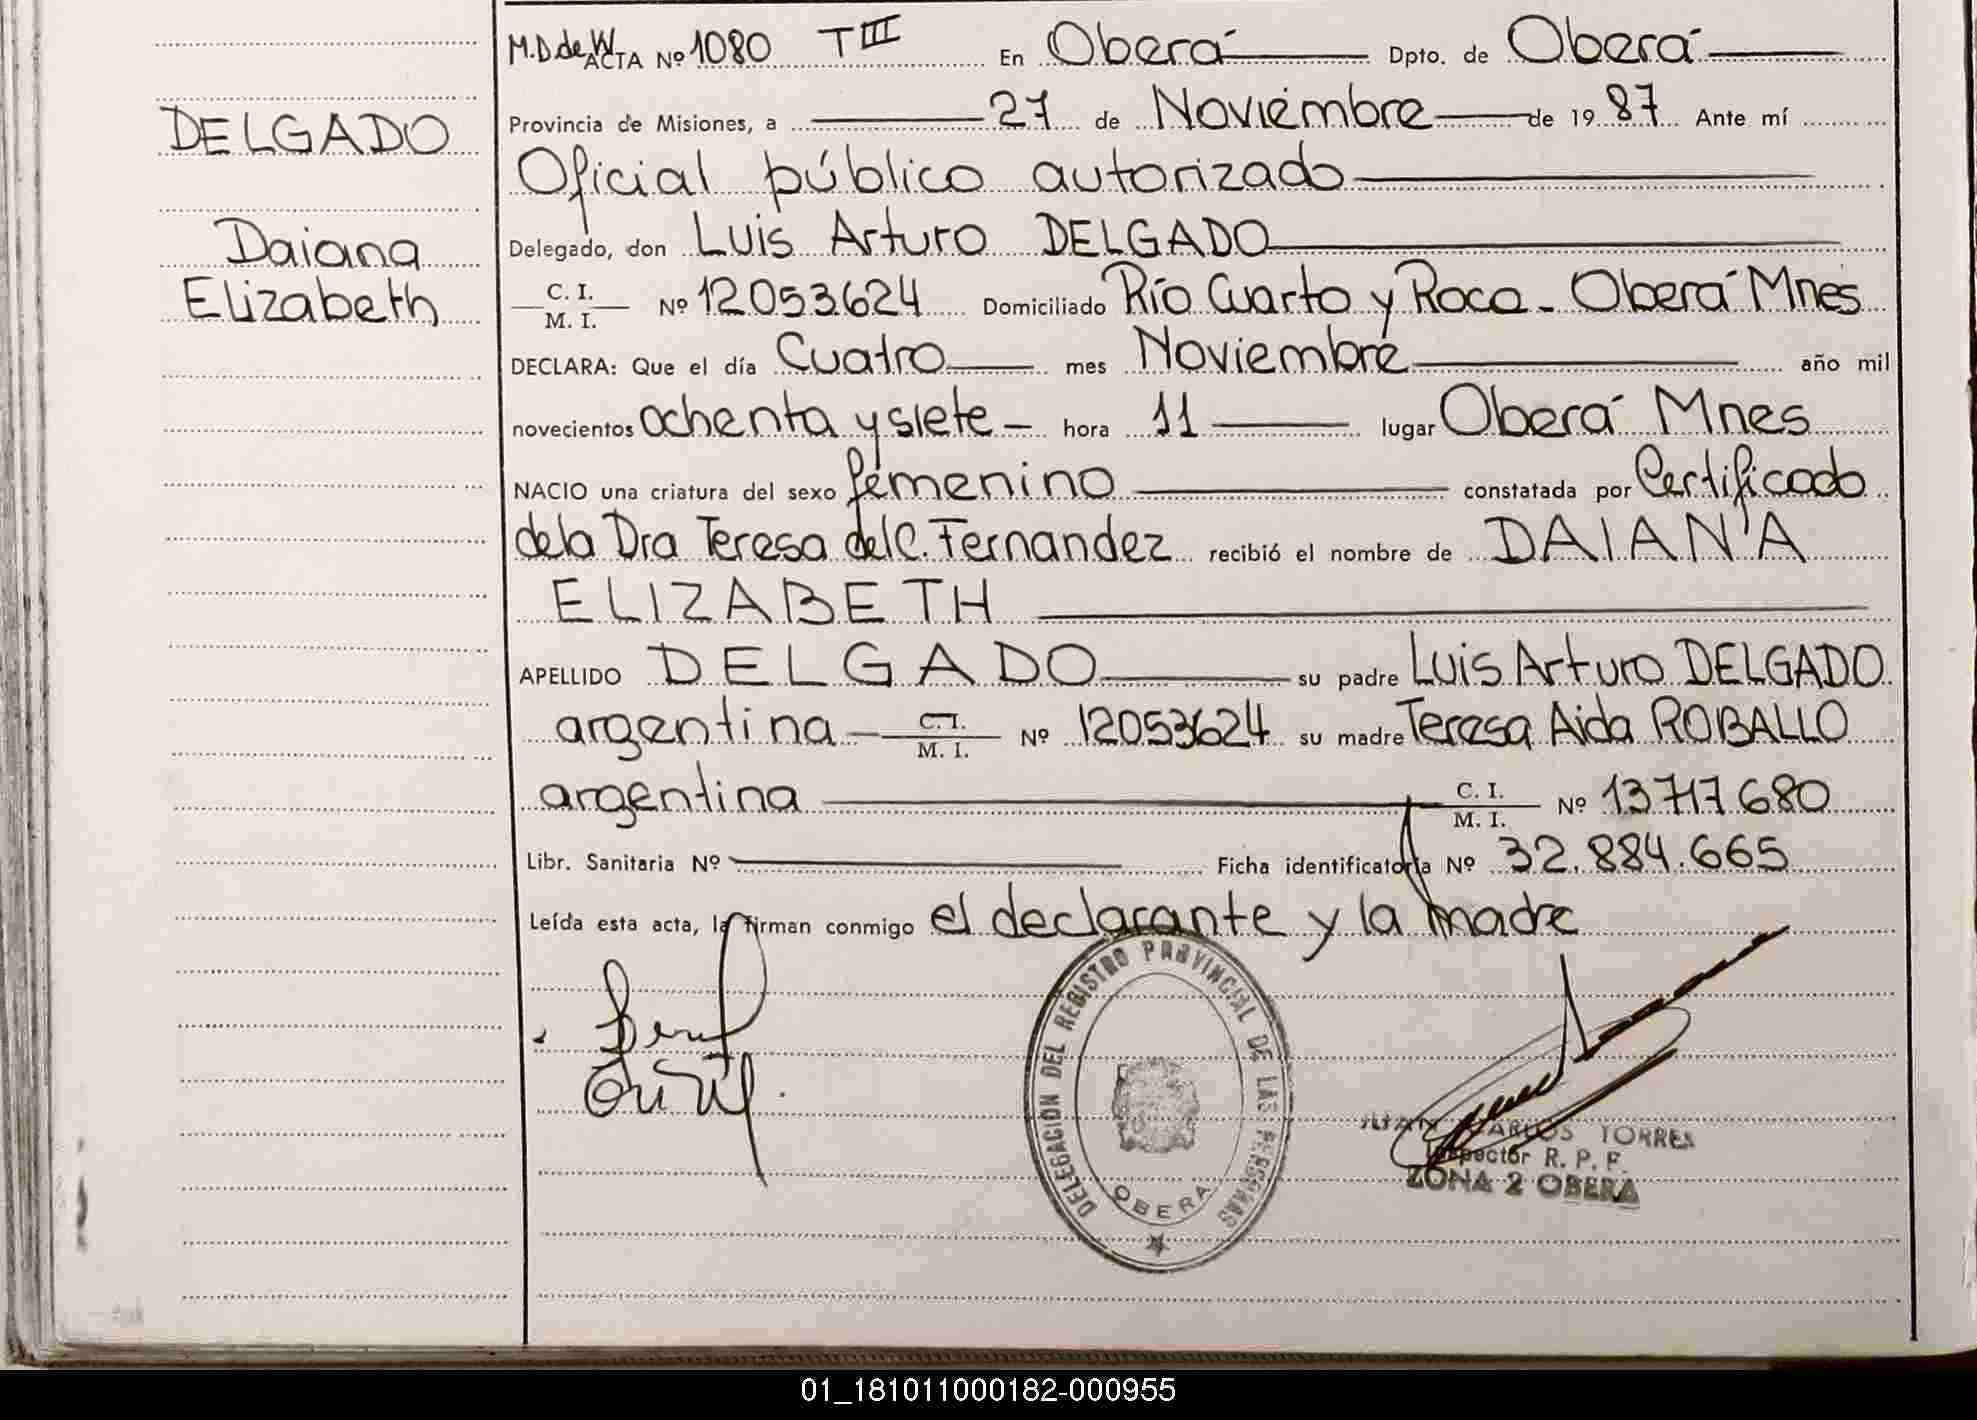 M.D.de W. ACTA Nº 1080 T III En Oberá Dpto. de Oberá
DELGADO
Daiana
Elizabeth
Provincia de Misiones, a 27 de Noviembre de 1987 Ante mí
Oficial público autorizado
Delegado, don Luis Arturo DELGADO
C. I. / M. I. Nº 12053624 Domiciliado Río Cuarto y Roca - Oberá Mnes
DECLARA: Que el día Cuatro mes Noviembre año mil
novecientos ochenta y siete - hora 11 lugar Oberá Mnes
NACIO una criatura del sexo femenino constatada por Certificado
de la Dra Teresa del C. Fernandez recibió el nombre de DAIANA
ELIZABETH
APELLIDO DELGADO su padre Luis Arturo DELGADO
argentina C. I. / M. I. Nº 12053624 su madre Teresa Aida ROBALLO
argentina C. I. / M. I. Nº 13717680
Libr. Sanitaria Nº Ficha identificatoria Nº 32.884.665
Leída esta acta, la firman conmigo el declarante y la madre
DELEGACION DEL REGISTRO PROVINCIAL DE LAS PERSONAS
OBERA
JUAN CARLOS TORRES
Inspector R. P. P.
ZONA 2 OBERA
01_181011000182-000955